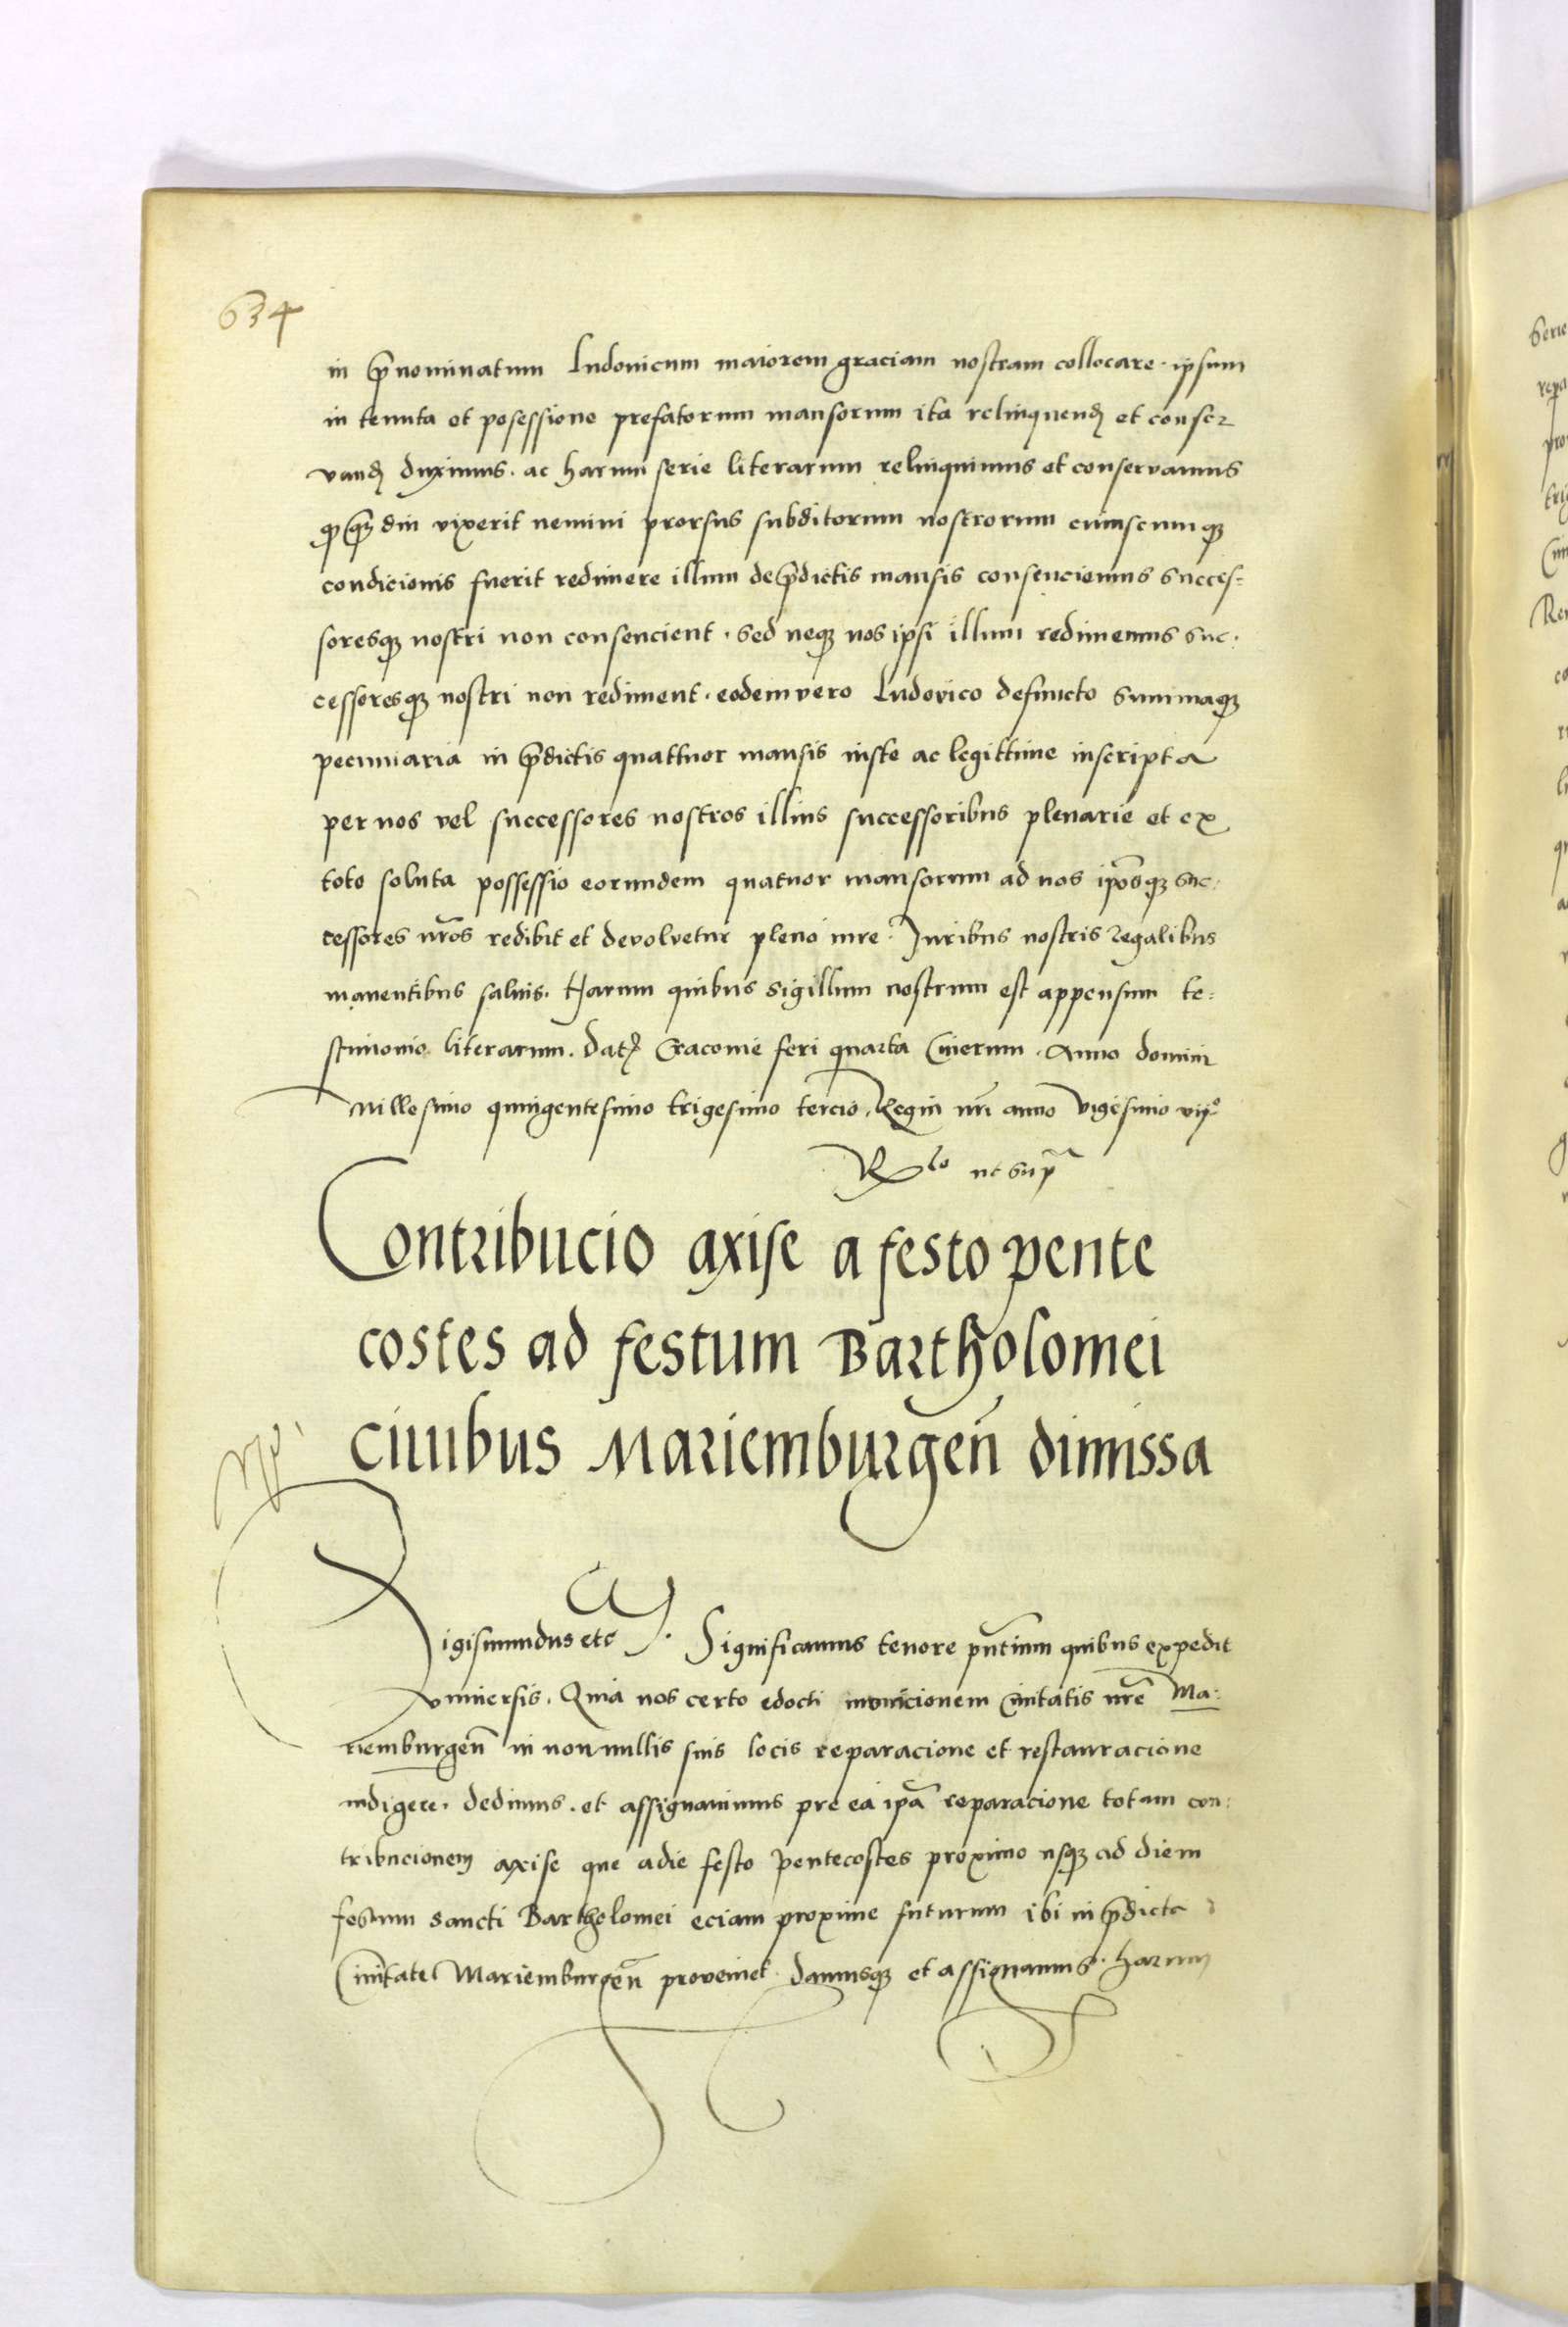 634
in p̄nominatum Ludovicum maiorem graciam nostram collocare · ipsum
in tenuta et posessione prefatorum mansorum ita relinquend̨ et conser
vand̨ duximus · ac harum serie literarum relinquimus et conservamus
qđ q̃diu vixerit nemini prorsus subditorum nostrorum cuiuscumqꝫ
condicionis fuerit redimere illum de p̄dictis mansis consenciemus succes=
soresqꝫ nostri non consencient · sed neqꝫ nos ipsi illum redimemus suc:
cessoresqꝫ nostri non rediment · eodem vero Ludovico defuncto summaqꝫ
pecuniaria in p̄dictis quattuor mansis iuste ac legittime inscripta
per nos vel successores nostros illius successoribus plenarie et ex
toto soluta possessio eorundem quatuor mansorum ad nos ip̄osqꝫ suc:
cessores nr̄os redibit et devolvetur pleno iure · Iuribus nostris regalibus
manentibus salvis · Harum quibus sigillum nostrum est appensum te:
stimonio literarum · Datꝫ Cracovie feri quarta Cinerum · Anno domini
Millesimo quingentesimo trigesimo tercio · Regni nr̄i anno vigesimo vijº
Rlo ut sup̄
Contribucio axise a festo pente
costes ad festum Bartholomei
civibus Mariemburgen̄ dimissa
Sigismundus etc · Significamus tenore p̄ntium quibus expedit
vniversis · Quia nos certo edocti municionem Civitatis nr̄e Ma:
riemburgen̄ in nonnullis suis locis reparacione et restauracione
indigere · dedimus · et assignavimus pre ea ip̄a reparacione totam con:
tribucionem axise que a die festo Pentecostes proximo usqꝫ ad diem
festum sancti Bartholomei eciam proxime futurum ibi in p̄dicta
Civitate Mariemburgen̄ proveniet · Damusqꝫ et assignamus · harum